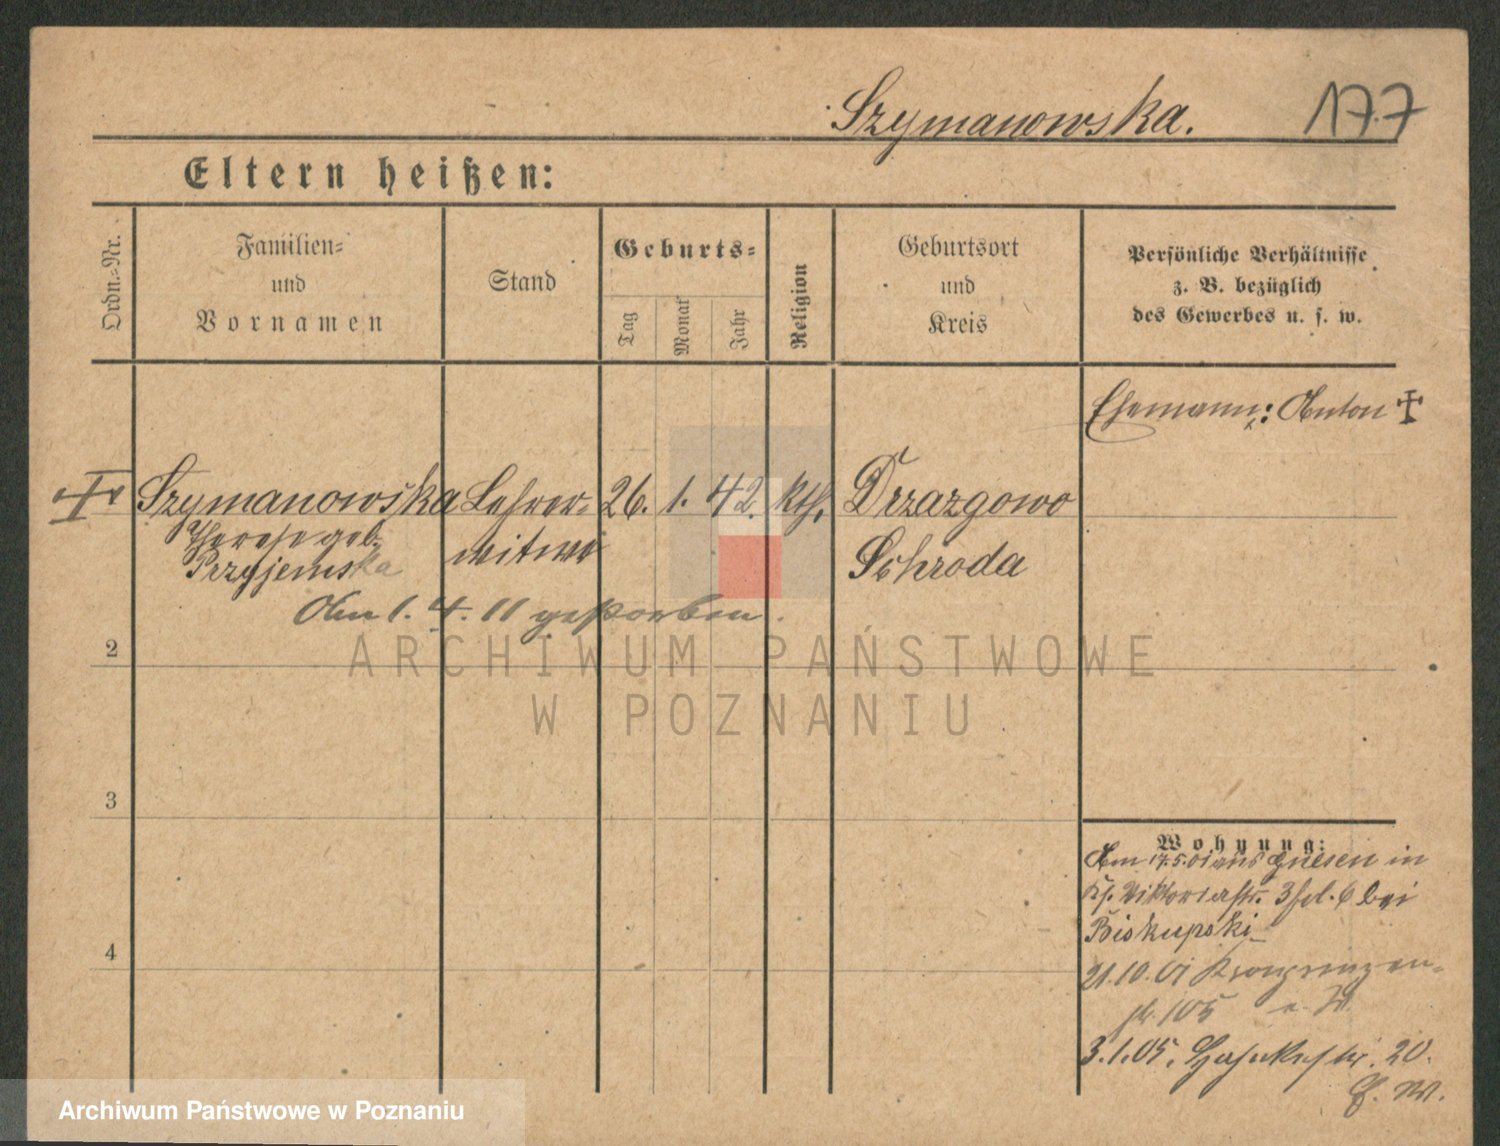 Szymanowska. 177
Eltern heißen:
Ordn.-Nr.
Familien-
und
Vornamen
Stand
Geburts-
Tag
Monat
Jahr
Religion
Geburtsort
und
Kreis
Persönliche Verhältnisse
z. B. bezüglich
des Gewerbes u. s. w.
Ehemann: Anton ✝
Szymanowska Lehrer- 26. 1. 42. kth. Drzazgowo
Therese geb. witwe Schroda
Przyjemska
Am 1. 4. 11 gestorben.
2
3
4
Wohnung:
Am 17.5.01 aus Gnesen in
Viktoriastr. 3 bei
Biskupski
21.10.01 Kronprinzen-
str. 105
3.1.05. 20.
ARCHIWUM PAŃSTWOWE
W POZNANIU
Archiwum Państwowe w Poznaniu